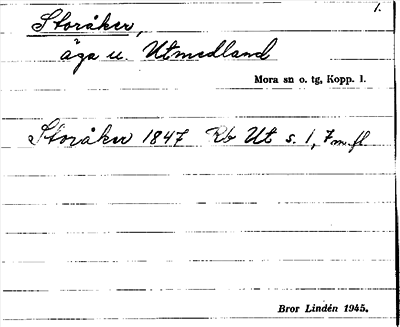 1.
Storåker,
äga u. Utmedland
Mora sn o. tg, Kopp. l.
Storåker 1847 Rb Ut s. 1, 7 m. fl.
Bror Lindén 1945.